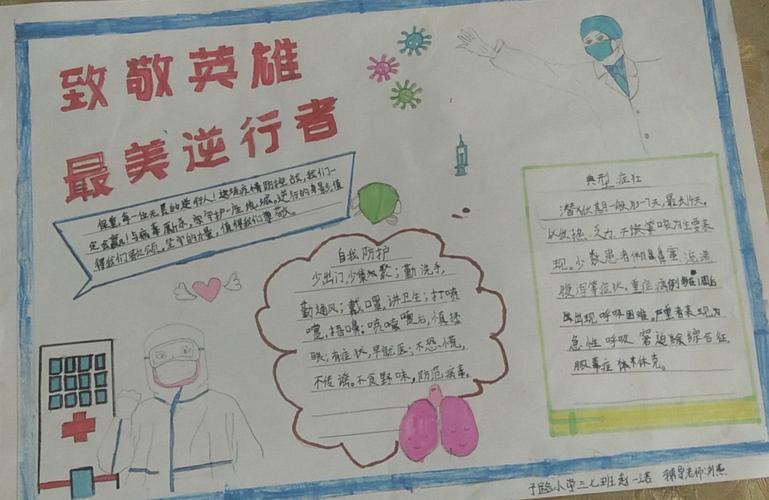 致敬英雄
最美逆行者
保重,每一位无畏的逆行人!这场疫情防控战,我们一
定会赢!与病毒厮杀,坚守护一座城,逆行的身影,值
得我们歌颂。坚守的力量,值得我们尊敬。
自我防护
少出门,少集聚;勤洗手,
勤通风;戴口罩,讲卫生;打喷
嚏,捂嘴;喷嚏后,慎揉
眼;有症状,早就医;不恐慌,
不传谣。不食野味,防范病毒。
典型症状
潜伏期一般为3-7天,最长14天。
以发热、乏力、干咳为主要表
现。少数患者伴鼻塞、流涕、
腹泻等症状。重症病例多在1周后
出现呼吸困难,严重者表现为
急性呼吸窘迫综合征,
脓毒症休克。
小学三七班赵一 辅导老师